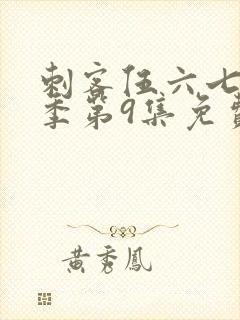 刺客伍六七
季第9集免费
黄秀凤